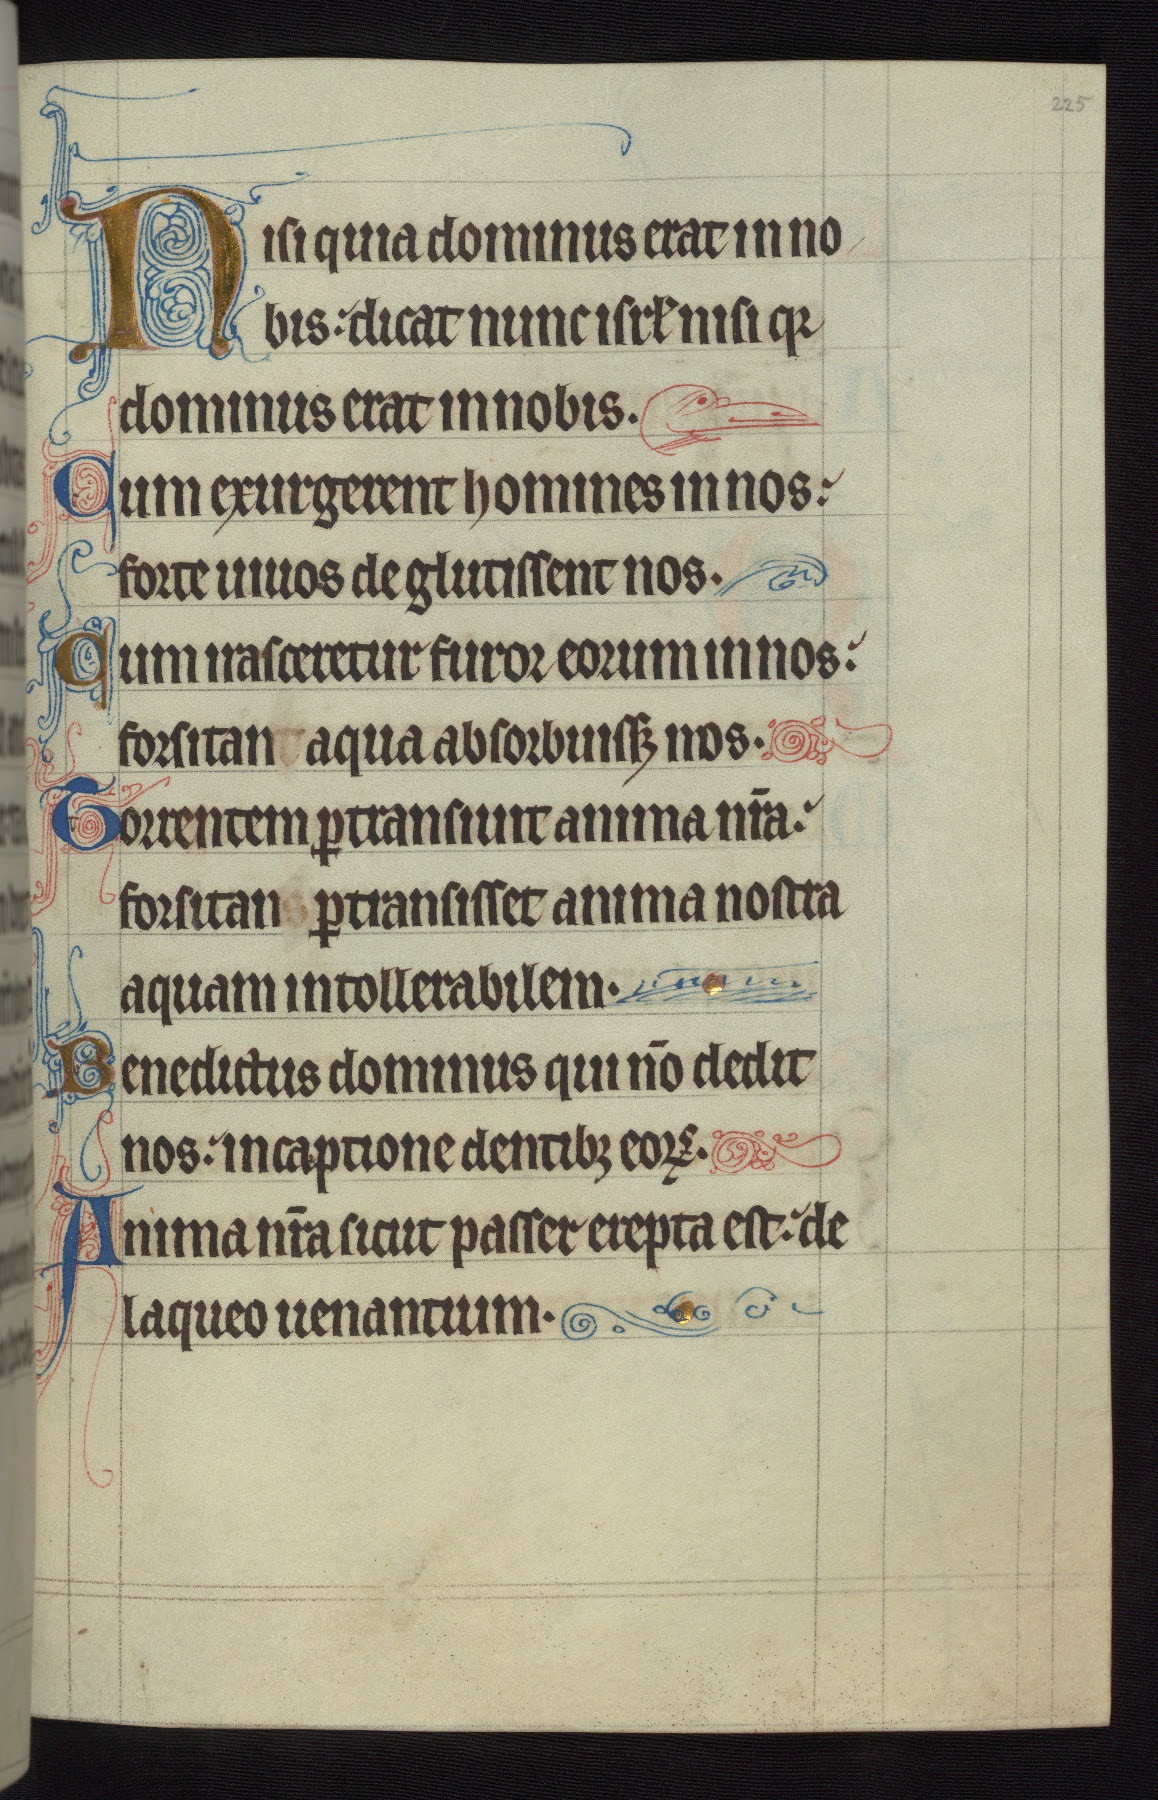 225
Nisi quia dominus erat in no
bis: dicat nunc isrl̄ nisi qꝛ
dominus erat in nobis.
Cum exurgerent homines in nos:
forte uiuos deglutissent nos.
Cum irasceretur furor eorum in nos:
forsitan aqua absorbuissꝫ nos.
Torrentem ꝑtransiuit anima nr̄a:
forsitan ꝑtransisset anima nostra
aquam intollerabilem.
Benedictus dominus qui nō dedit
nos: in captione dentibꝫ eoꝝ.
Anima nr̄a sicut passer erepta est: de
laqueo uenantium.